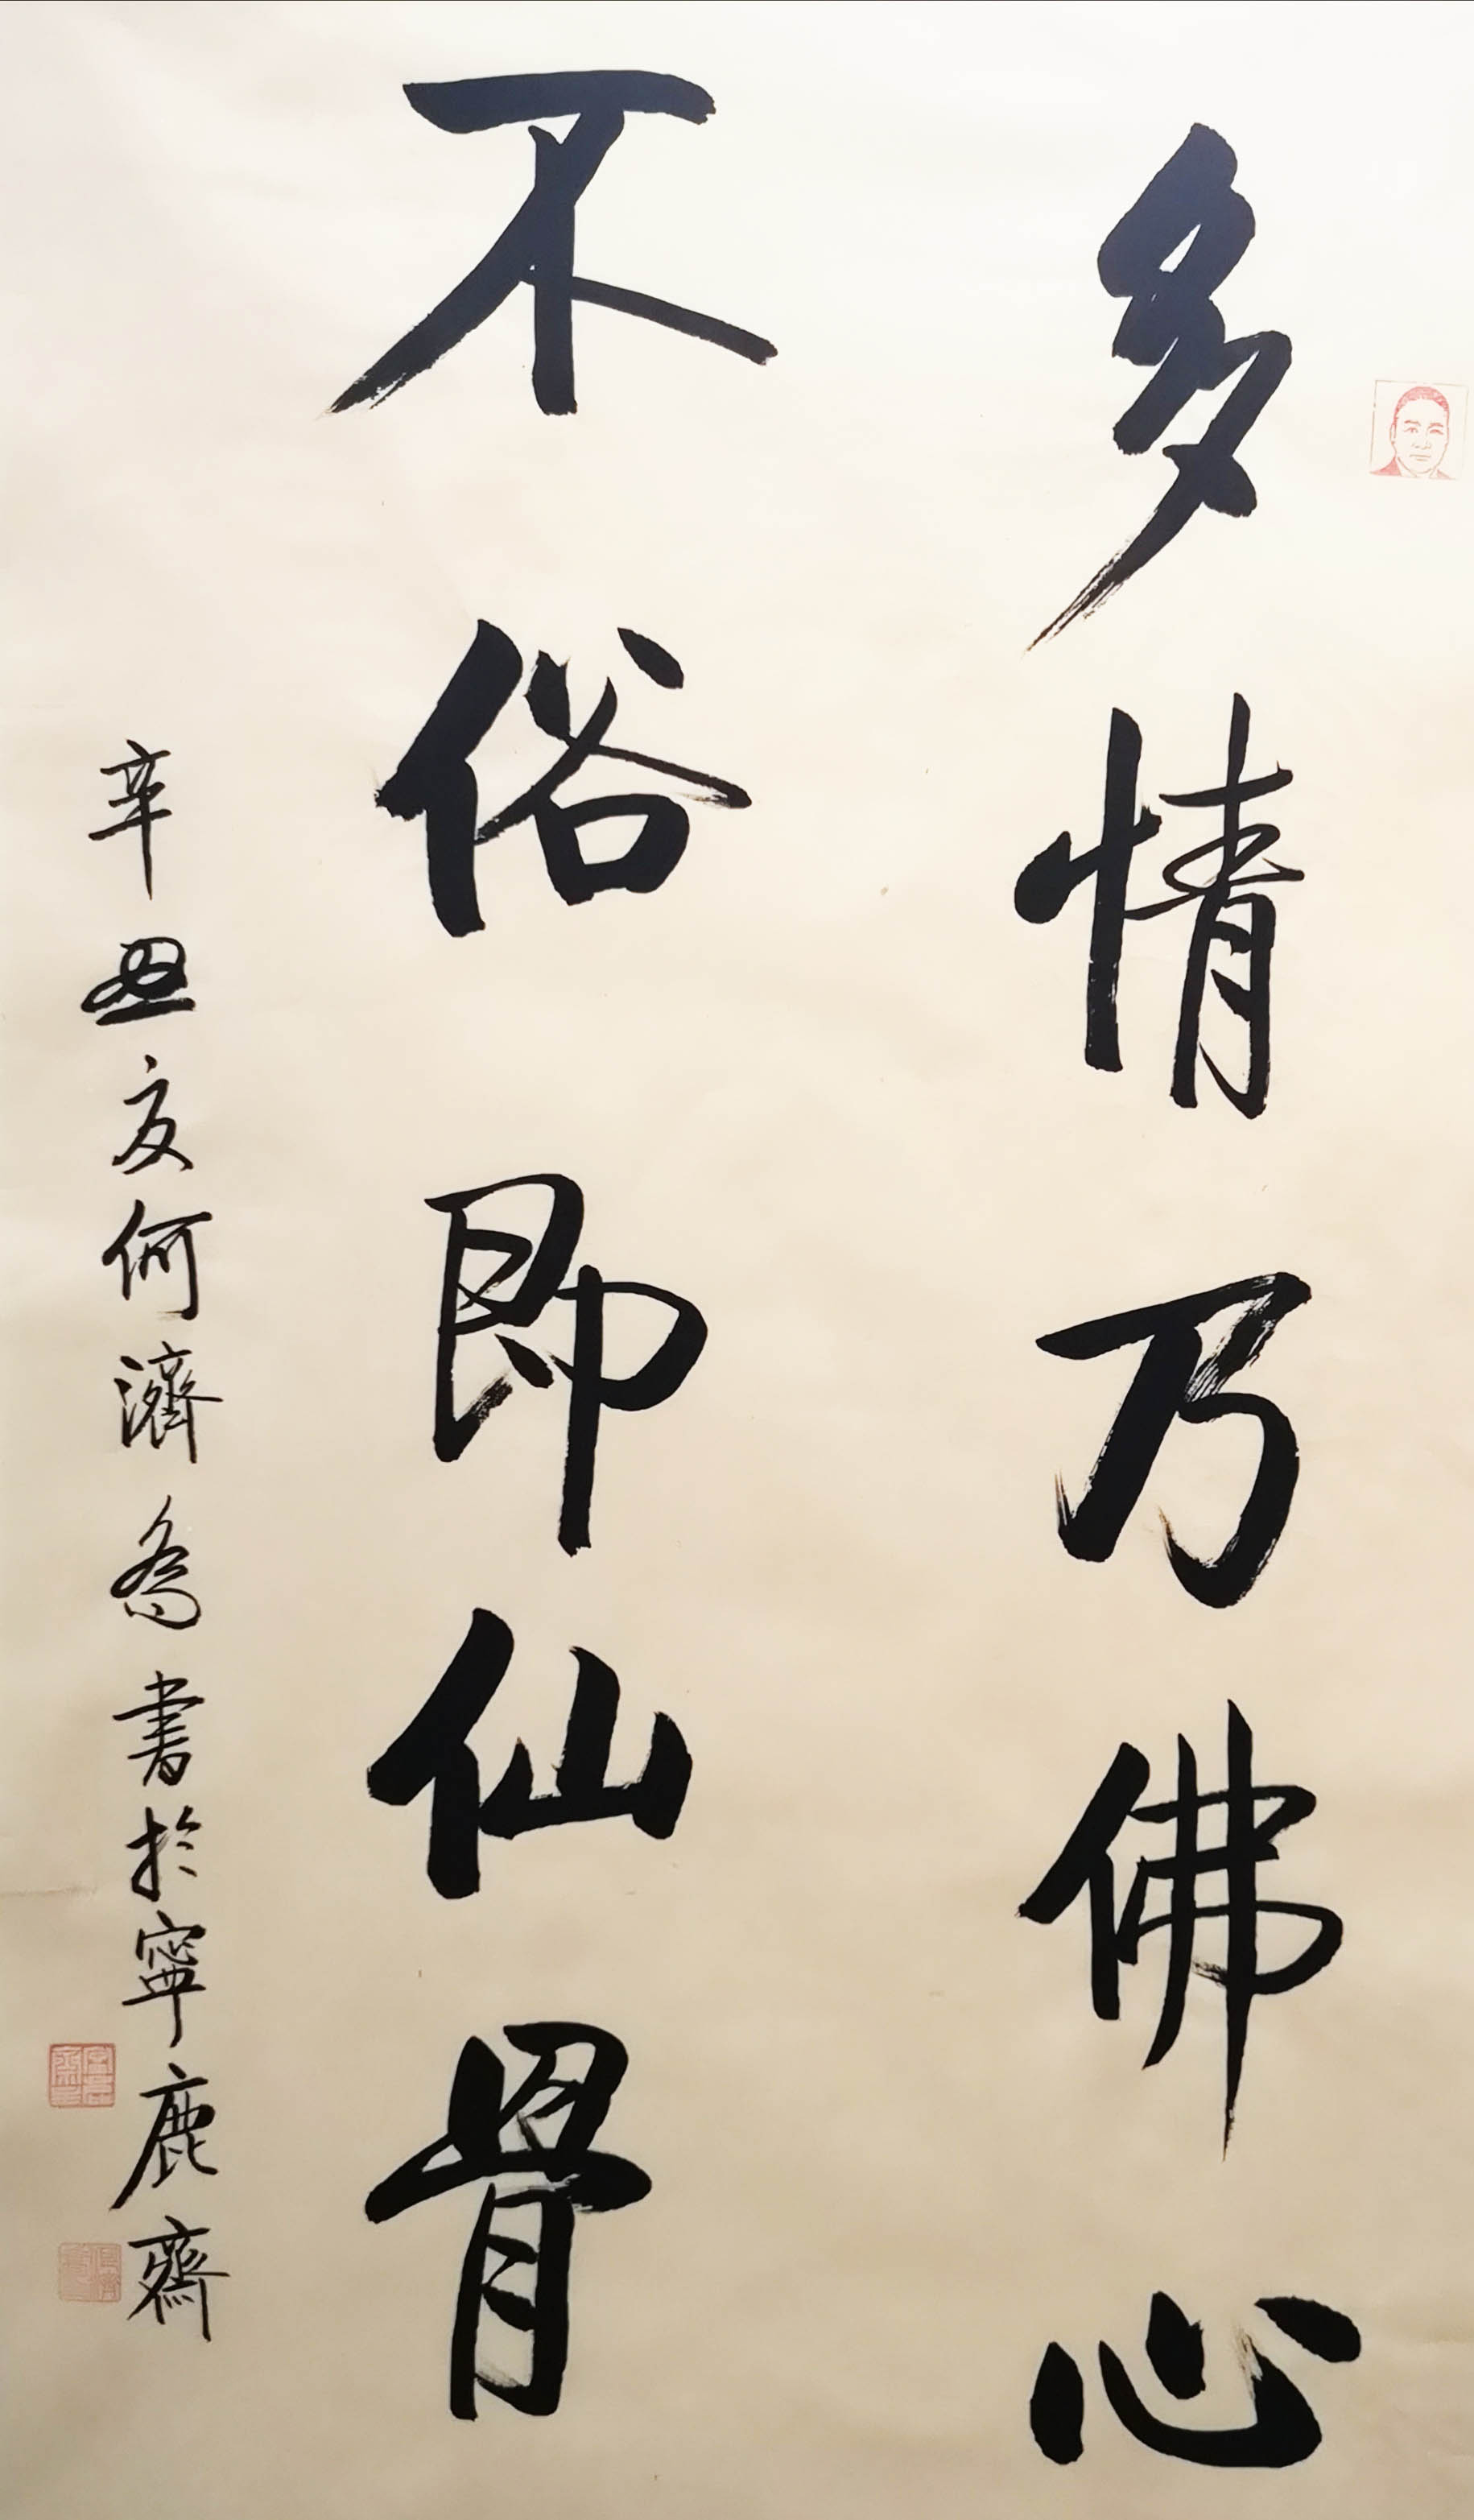 多情乃佛心
不俗即仙骨
辛丑夏何濟喬書於寧鹿齋